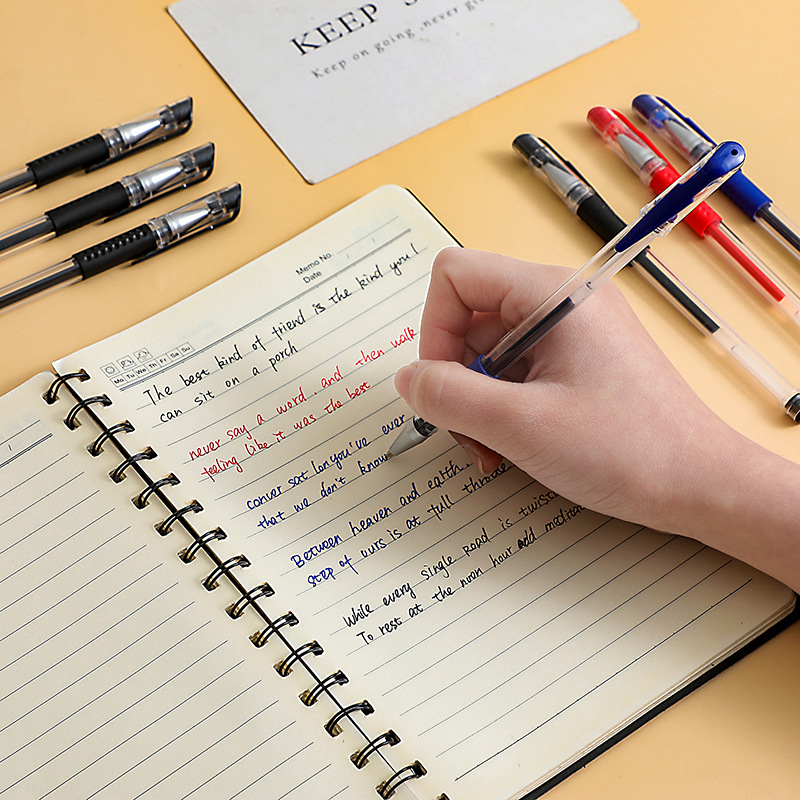 KEEP
Keep on going never gi
Memo No.
Date / /
Mo Tu We Th Fr Sa Su
The best kind of friend is the kind you!
can sit on a porch
never say a word, and then walk
feeling like it was the best
conver sat lon you've ever
that we don't know
Between heaven and earth.
step of ours is at full throttle
While every single Road is twist
To rest at the noon hour add medita